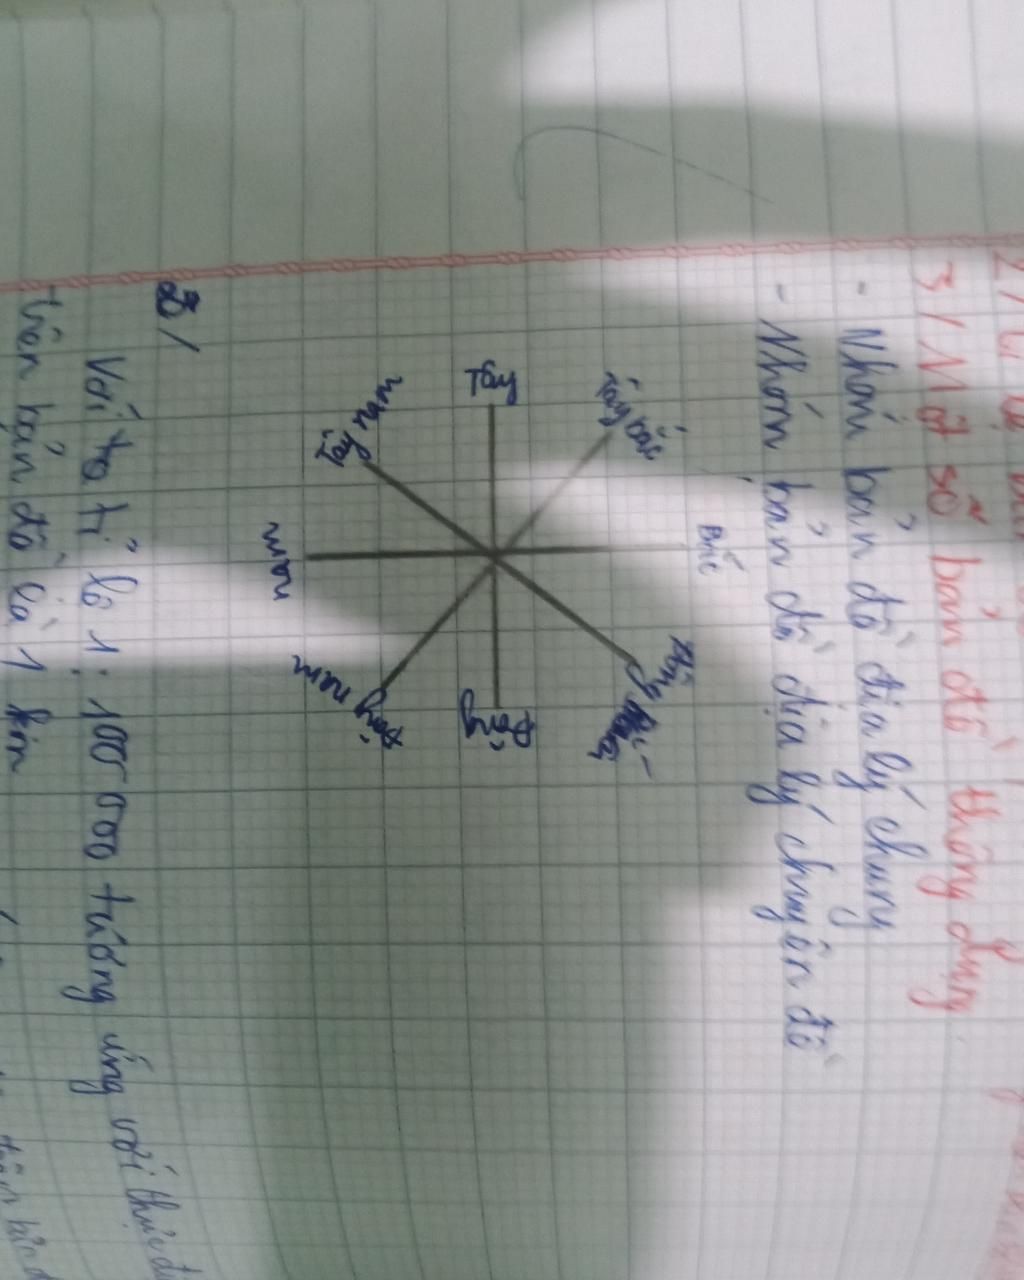 3/ Một số bản đồ thông dụng
- Nhóm bản đồ địa lý chung
- Nhóm bản đồ địa lý chuyên đề
Bắc
Tây bắc
Đông
Tây
Đông
Tây nam
Đông nam
nam
3/
Với tỉ lệ 1: 100 000 tương ứng với
trên bản đồ là 1 km